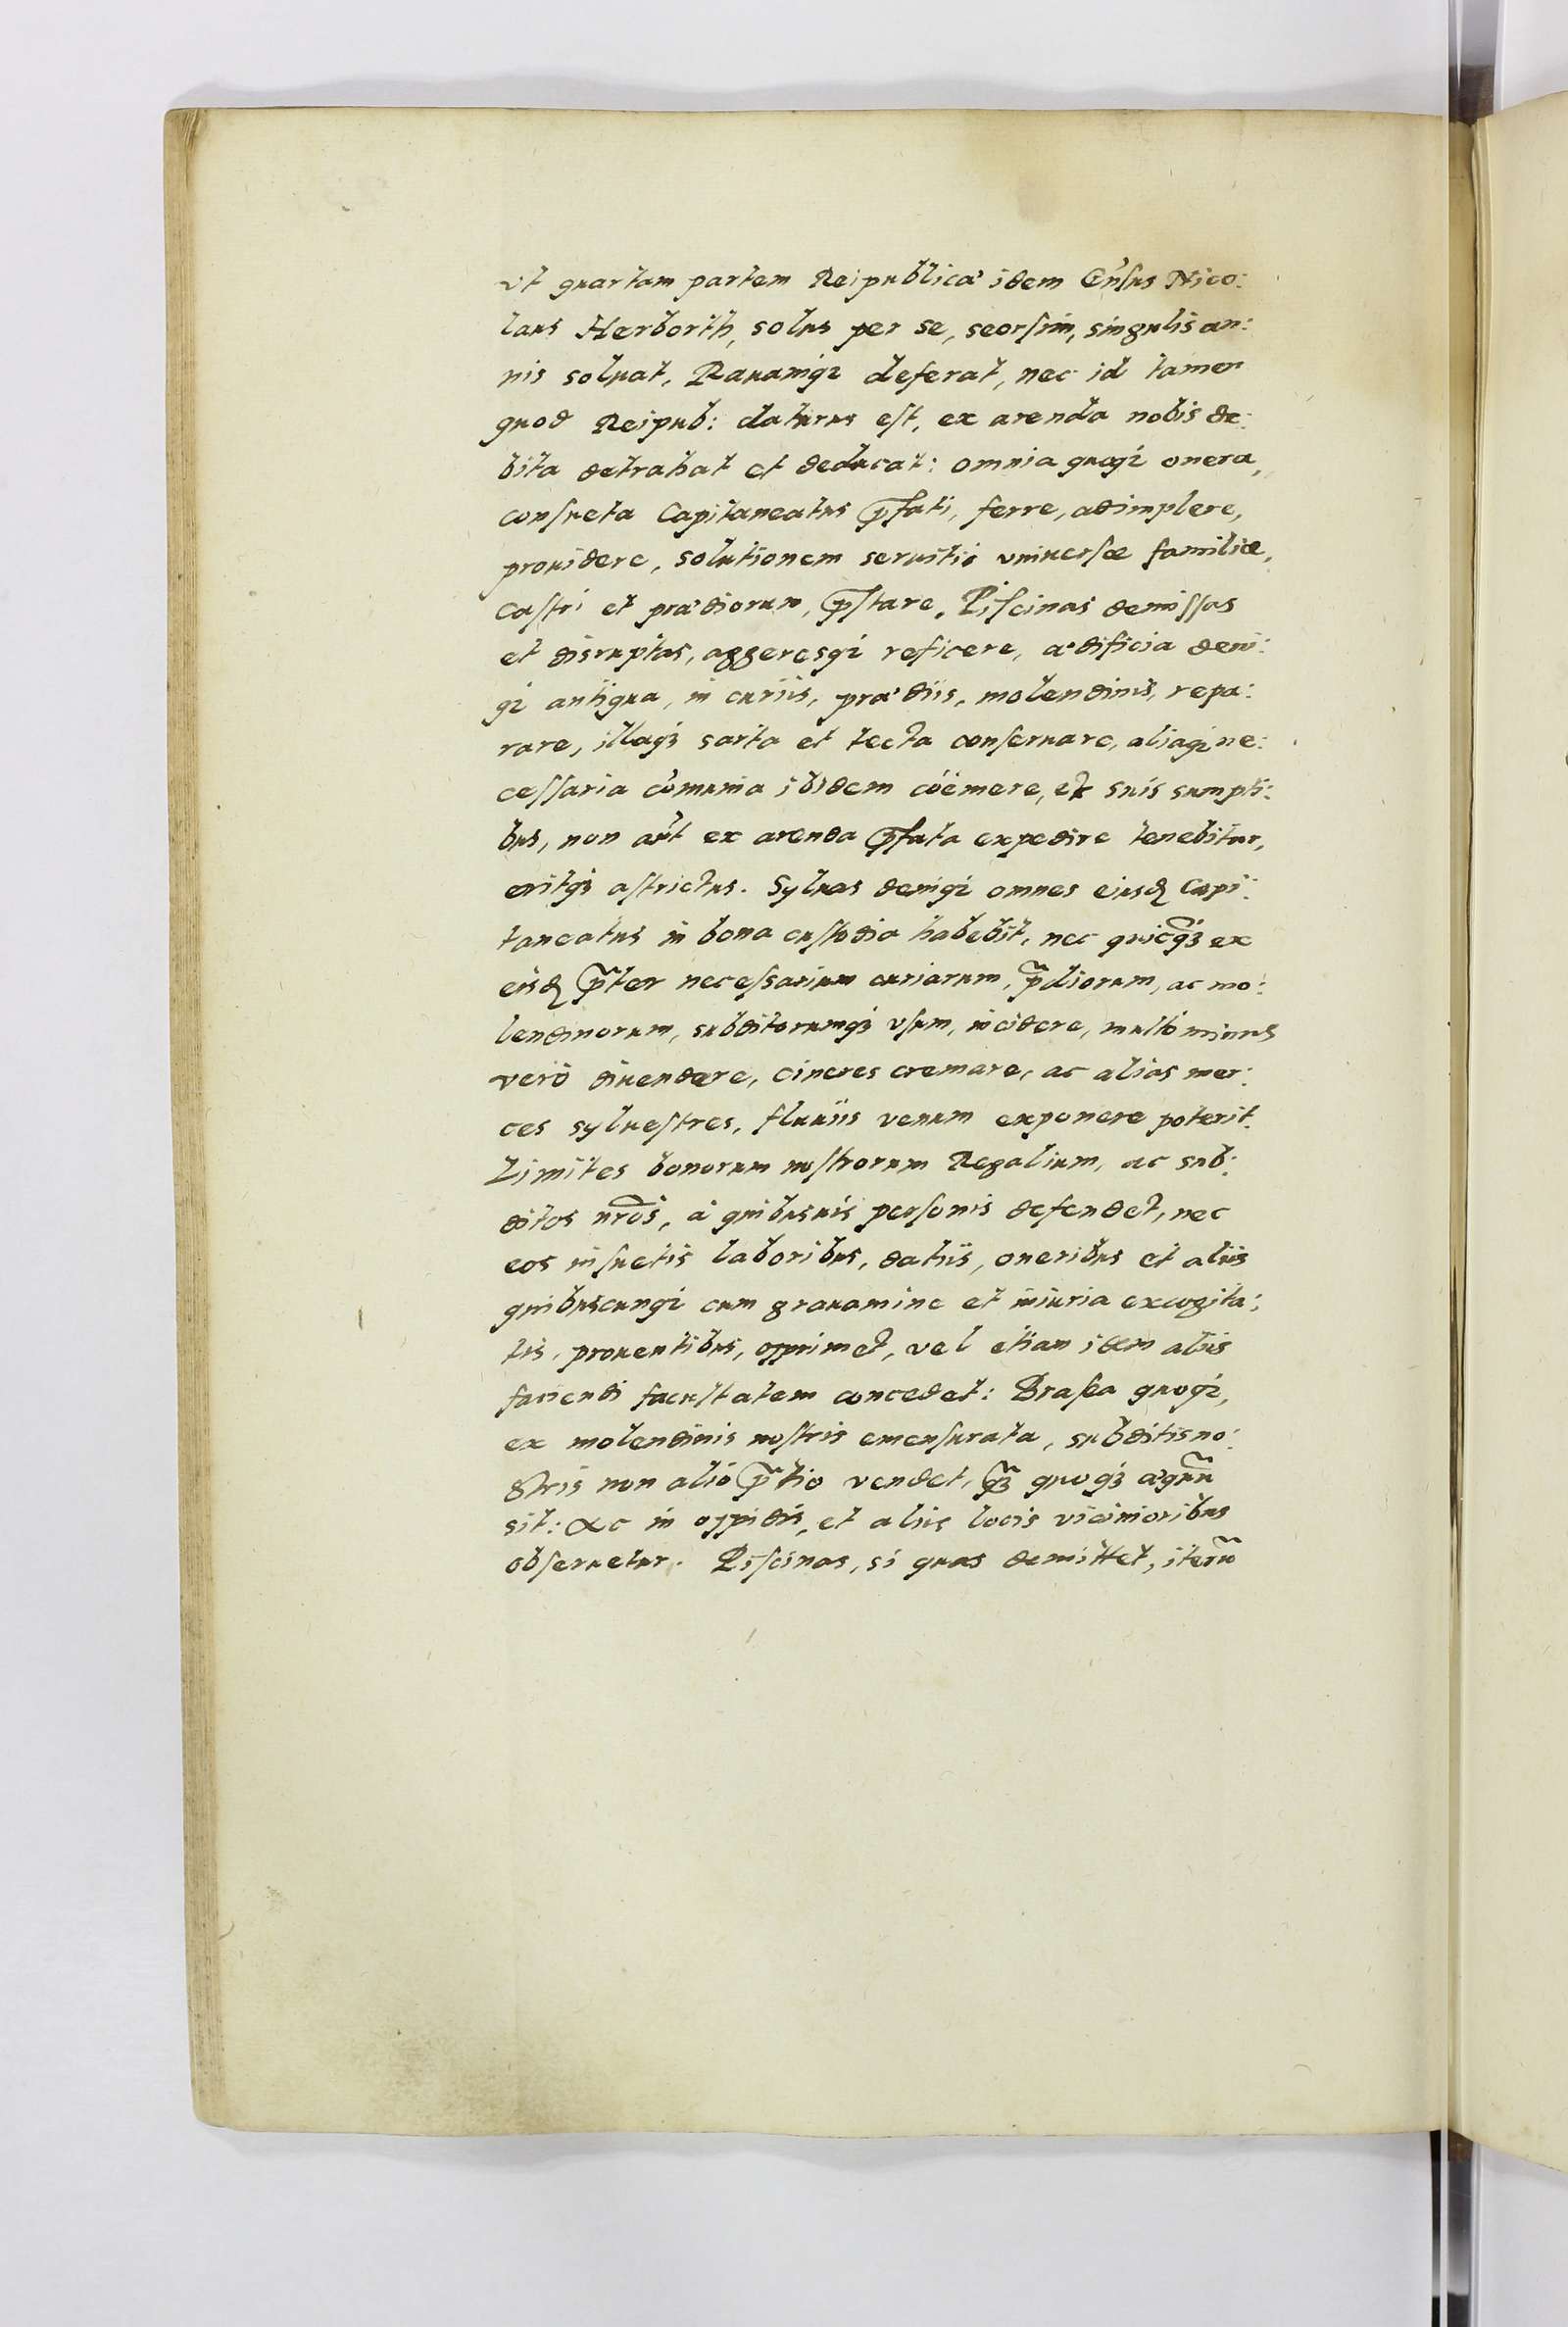 vt quartam partem Reipublicæ idem Gn̄sus Nico:
laus Herborth, solus per se, seorſim, singulis an:
nis soluat, Rauamq3 deferat, nec id tamen
quod Reipub: daturus eſt, ex arenda nobis de:
bita detrahat et deducat: omnia quoq3 onera,
conſueta Capitaneatus p̄fati, ferre, adimplere,
prouidere, solutionem seruitii vniuerſæ familiæ,
caſtri et prædiorum, p̄ſtare, Piſcinas demiſſas
et disruptas, aggeresq3 reficere, ædificia deni:
q3 antiqua, in curiis, prædiis, molendinis, repa:
rare, illaq3 sarta et tecta conſeruare, aliaq3 ne:
ceſſaria com̄unia ibidem coëmere, et suis sumpti:
bus, non aūt ex arenda p̄fata expedire tenebitur,
eritq3 aſtrictus. Syluas deniq3 omnes eiusd Capi:
taneatus in bona cuſtodia habebit, nec quicq̄3 ex
eisd p̄ter neceſsarium curiarum, p̄diorum, ac mo:
lendinorum, subditorumq3 vſum, incidere, multò minus
verò diuendere, cineres cremare, ac alias mer:
ces sylueſtres, fluuiis venum exponere poterit.
Limites bonorum noſtrorum Regalium, ac sub:
ditos nr̄os, à quibusuis perſonis defendet, nec
eos inſuetis laboribus, datiis, oneribus et aliis
quibuscunq3 cum grauamine et iniuria excogita:
tis, prouentibus, opprimet, vel etiam idem aliis
faciendi facultatem concedet: Braſea quoq3,
ex molendinis noſtris emenſurata, subditis no:
ſtris non alio p̄tio vendet, q̄3 quoq3 æquū
sit: ac in oppidis, et aliis locis vicinioribus
obſeruetur. Piſcinas, si quas demittet, iterū